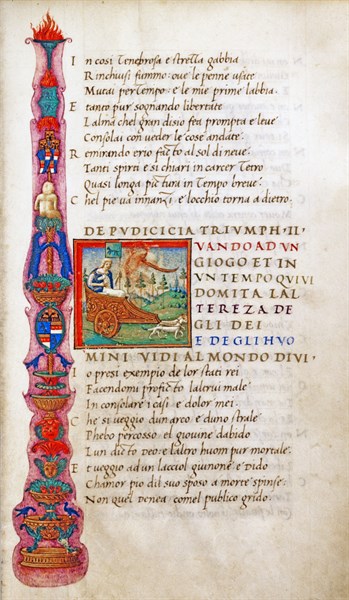 In cosi Tenebrosa e stretta gabbia
Rinchiusi fummo: oue le penne usite
Mutai per tempo: e le mie prime labbia.
E tanto pur sognando libertate
L alma chel gran disio fea prompta e leue
Consolai con ueder le cose andate.
R emirando er io facto al sol di neue
Tanti spirti e si chiari in carcer Tetro
Quasi longa pictura in Tempo breue
C hel pie ua innanzi e locchio torna a dietro.
DE PVDICICIA TRIVMPH. II.
QVANDO AD VN
GIOGO ET IN
VN TEMPO QVIVI
DOMITA LAL
TEREZA DE
GLI DEI
E DE GLI HVO
MINI VIDI AL MONDO DIVI
I o presi exempio de lor stati rei
Facendomi profecto laltrui male
In consolare i casi e dolor mei.
C he si ueggio dun arco e duno strale
Phebo percosso el giouine dabido
L un dicto deo: e laltro huom pur mortale.
E t ueggio ad un lacciol giunone e Dido
Chamor pio dil suo sposo a morte spinse
Non quel denea comel publico grido.